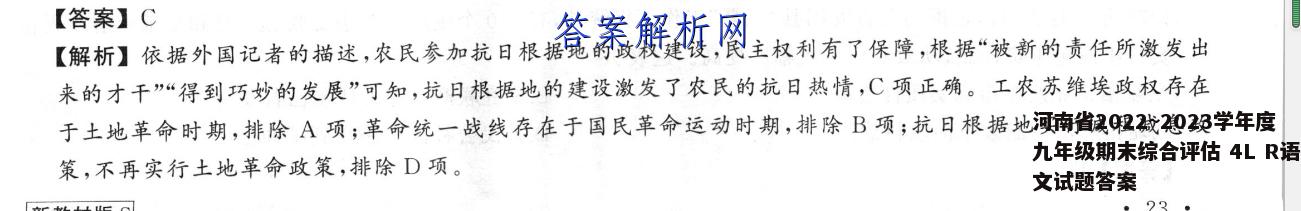 【答案】C
答案解析网
【解析】依据外国记者的描述,农民参加抗日根据地的政权建设,民主权利有了保障,根据“被新的责任所激发出
来的才干”“得到巧妙的发展”可知,抗日根据地的建设激发了农民的抗日热情,C 项正确。工农苏维埃政权存在
于土地革命时期,排除 A 项;革命统一战线存在于国民革命运动时期,排除 B 项;抗日根据地实行减租减息政
策,不再实行土地革命政策,排除 D 项。
河南省2022~2023学年度
九年级期末综合评估 4L R语
文试题答案
新教材版
· 23 ·